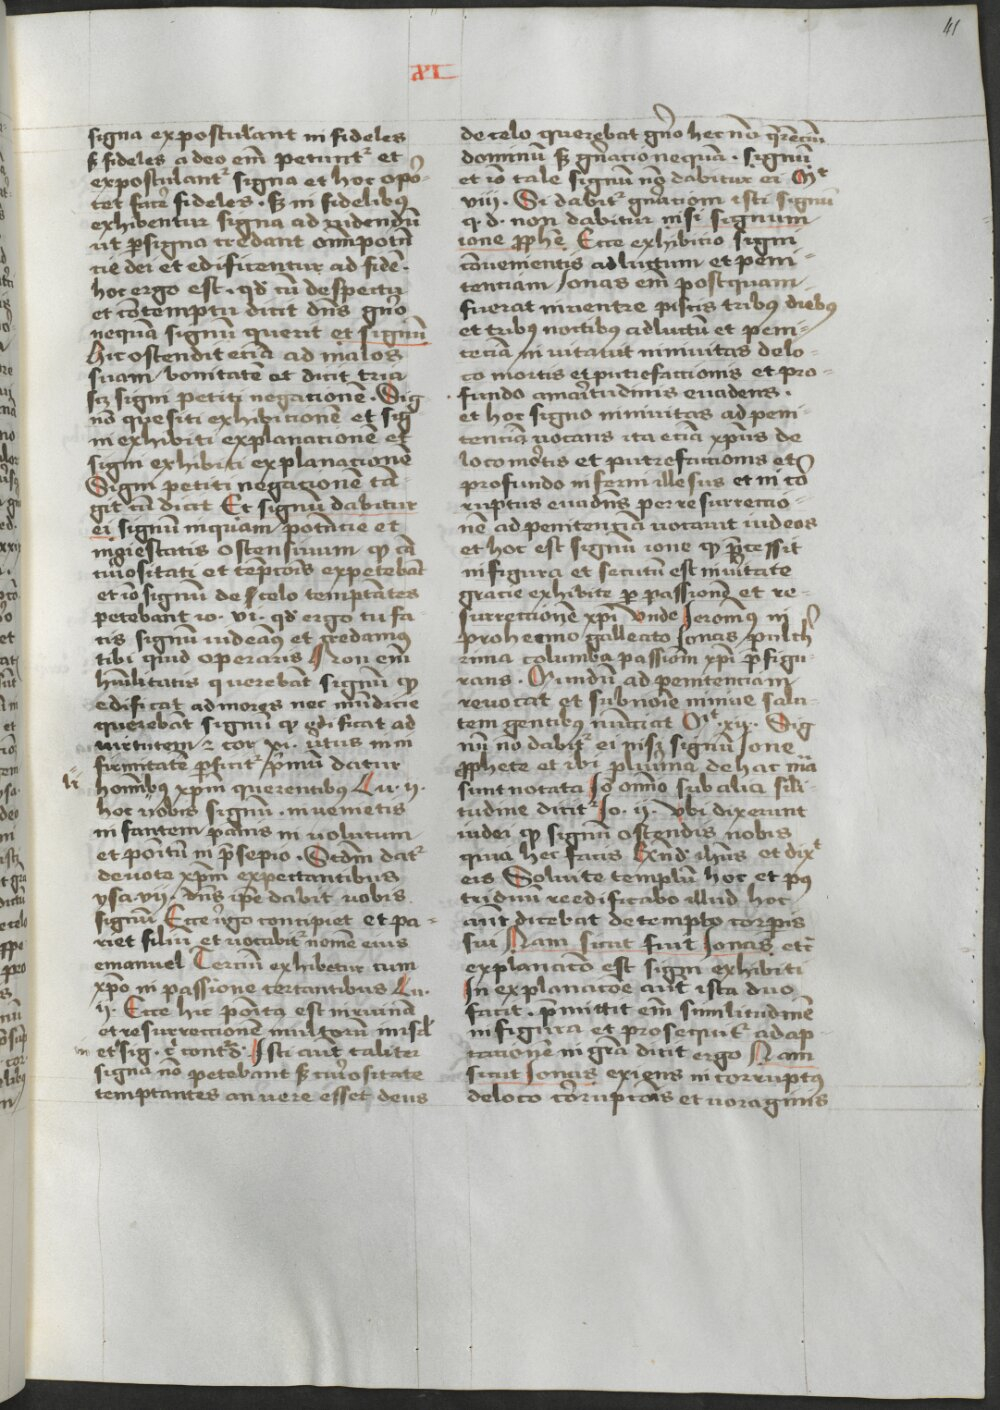 41
xi
signa expostulant infideles
sꝫ fideles a deo em̄ petunt᷑ et
expostulant᷑ signa et hoc opor
tet facē fideles . sꝫ infidelibꝰ
exhibentur signa ad videndū
ut ꝑ signa credant omnipotn̄
cie dei et edificentur ad fidē .
hoc ergo est . qd̓ cū despectu
et cōtemptu dicit dn̄s gn̄o
nequā signū querit et signū
hic ostendit eciā ad malos
suam bonitatē et dicit tria
sꝫ signi petiti negacionē . Sig
ni quesiti exhibicionē et sig
ni exhibiti explanacionē et
signi exhibiti explanacionē
Signi petiti negacionē tā-
git cū dicit Et signū dabitur
ei signū inquam potn̄cie et
maiestatis ostensiuum qꝫ cā
curiositati et tēptacōis expetebāt
et iō signū de celo temptātes
petebant io . vi . qd̓ ergo tu fa
cis signū uideamꝰ et credamꝰ
tibi quid operaris Non em̄
hūilitatis querebāt signū qꝫ
edificat ad mores nec mūdicie
querebāt signū qꝫ edificat ad
uirtutem 2 cor xi . v̓tus in in
firmitate ꝑficit᷑ p̄mū datur
hom̄ibus xp̄m querentibus Lu . ij .
hoc uobis signū . inuenietis
infantem pānis inuolutum
et poītū in p̄sepio . Scd̄m dat᷑
deuote xp̄m expectantibus
ysa . vij . dn̄s ip̄e dabit uobis
signū Ecce v̓go concipiet et pa-
riet filiū et uocabit᷑ nomē eius
emanuel Terciū exhibetur cum
xp̄o in passione certantibus Lu .
ij . Ecce hic poītꝰ est in ruinā
et resurreccionē multorū in isrl̄
et ī sig . c̓ cont̓d̓ . Isti aūt taliter
signa nō petebant sꝫ curiositate
temptantes an uere esset deus
de celo querebat gn̄o hec nō q̄rēcīū
dominū sꝫ gn̄acio nequā . signū
et iō tale signū nō dabitur ei Mt
viii . Si dabit᷑ gn̄aciom isti signū
q . d . non dabitur nisi signum
ione ꝓphē Ecce exhibicio signi
cōuenientis ad lugtum et peni-
tenciam Jonas em̄ postquam
fuerat in uentre piscis tribꝰ diebꝰ
et tribꝰ noctibꝰ ad luctū et peni-
teciā inuitauit niniuitas de lo-
co mortis et putrefaccionis et pro-
fundo amaritudinis euadens .
et hoc signo niniuitas ad peni
tenciā uocans ita eciā xp̄us de
loco mortis et putrefaccionis et
profundo inferni illesus et in co
ruptus euadēs per resurreccio-
nē ad penitenciā uocauit iudeos
et hoc est signū ione qꝫ p̄cessit
in figura et secutū est in v̓itate
gracie exhibite ꝑ passionē et re-
surrectionē xp̄i vnde Jeromꝰ in
prohemio galleato Jonas pulch̓
rima columba passiom xp̄i p̄figu
rans . Mundū ad penitenciam
reuocat et sub noīe niniue salu-
tem gentibus nūciat Mt̄ . xij . Sig
nū nō dabit᷑ ei nisi signū Jone
ꝓphete et ibi plurima de hac mā
sunt notata Jō omīo sub alia sili
tudine dicit᷑ Jo . ij . vbi dixerunt
iudei qꝫ signū ostendis nobis
quia hec facis Rn̄d̓ ih̄us et dixt
eis Soluite templū hoc et pꝰ
triduū reedificabo illud hoc
aūt dicebat de templo corꝑis
sui Nam sicut fuit Jonas etc̄
explanacō est signi exhibiti
In explanacōe aūt ista duo
facit . p̄mittit em̄ similitudinē
in figura et prosequit᷑ adap
tacionē in gr̄a dicit ergo Nam
sicut Jonas exiens incorruptꝰ
de loco corrupcōis et uoraginis